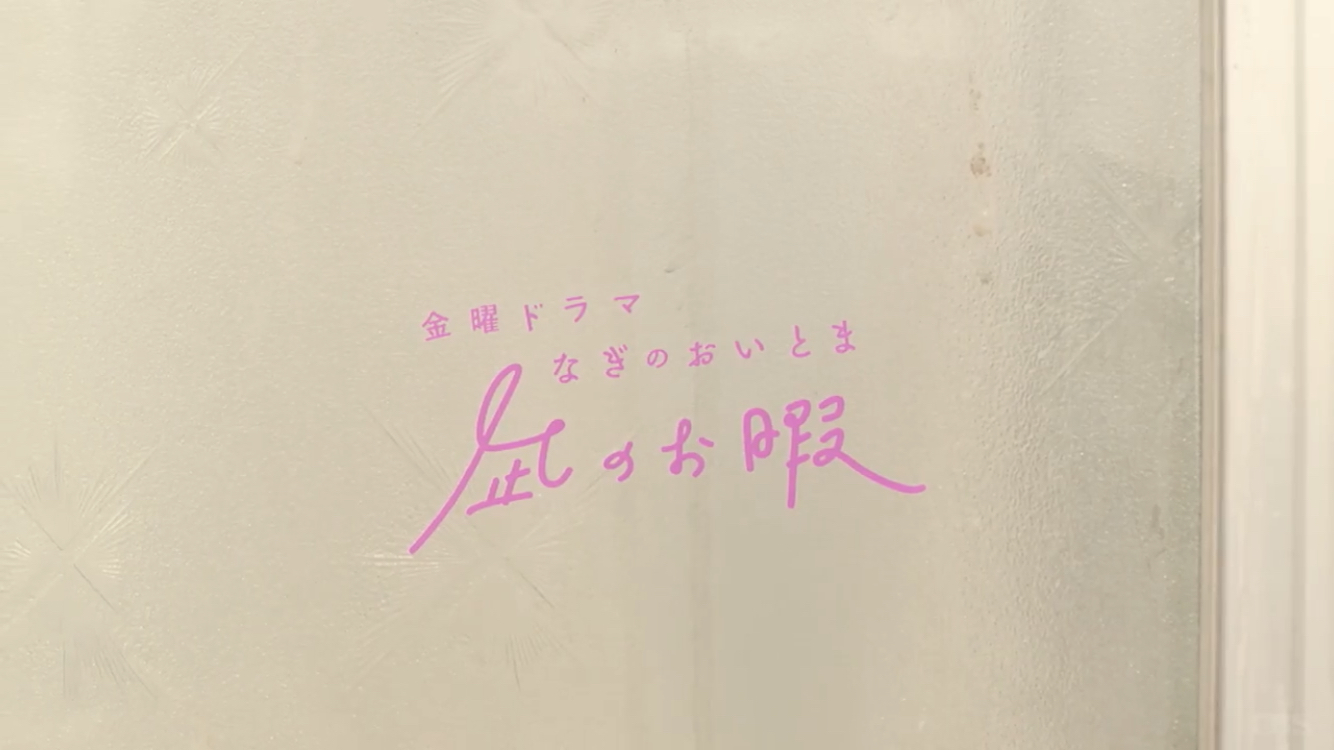 金曜ドラマ
なぎのおいとま
凪のお暇